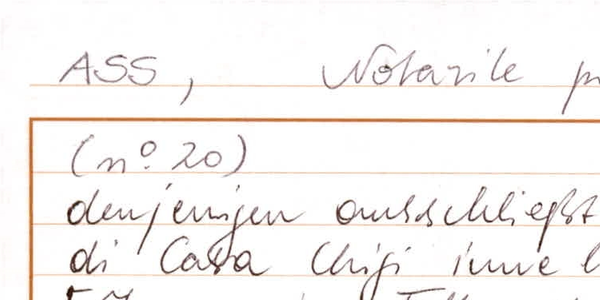 ASS, Notarile
(nº 20)
denjenigen ausschließt
di Casa Chigi inne